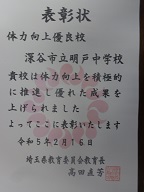 表彰状
体力向上優良校
深谷市立明戸中学校
貴校は体力向上を積極的
に推進し優れた成果を
上げられました
よってここに表彰いたします
令和5年2月16日
埼玉県教育委員会教育長
高田直芳